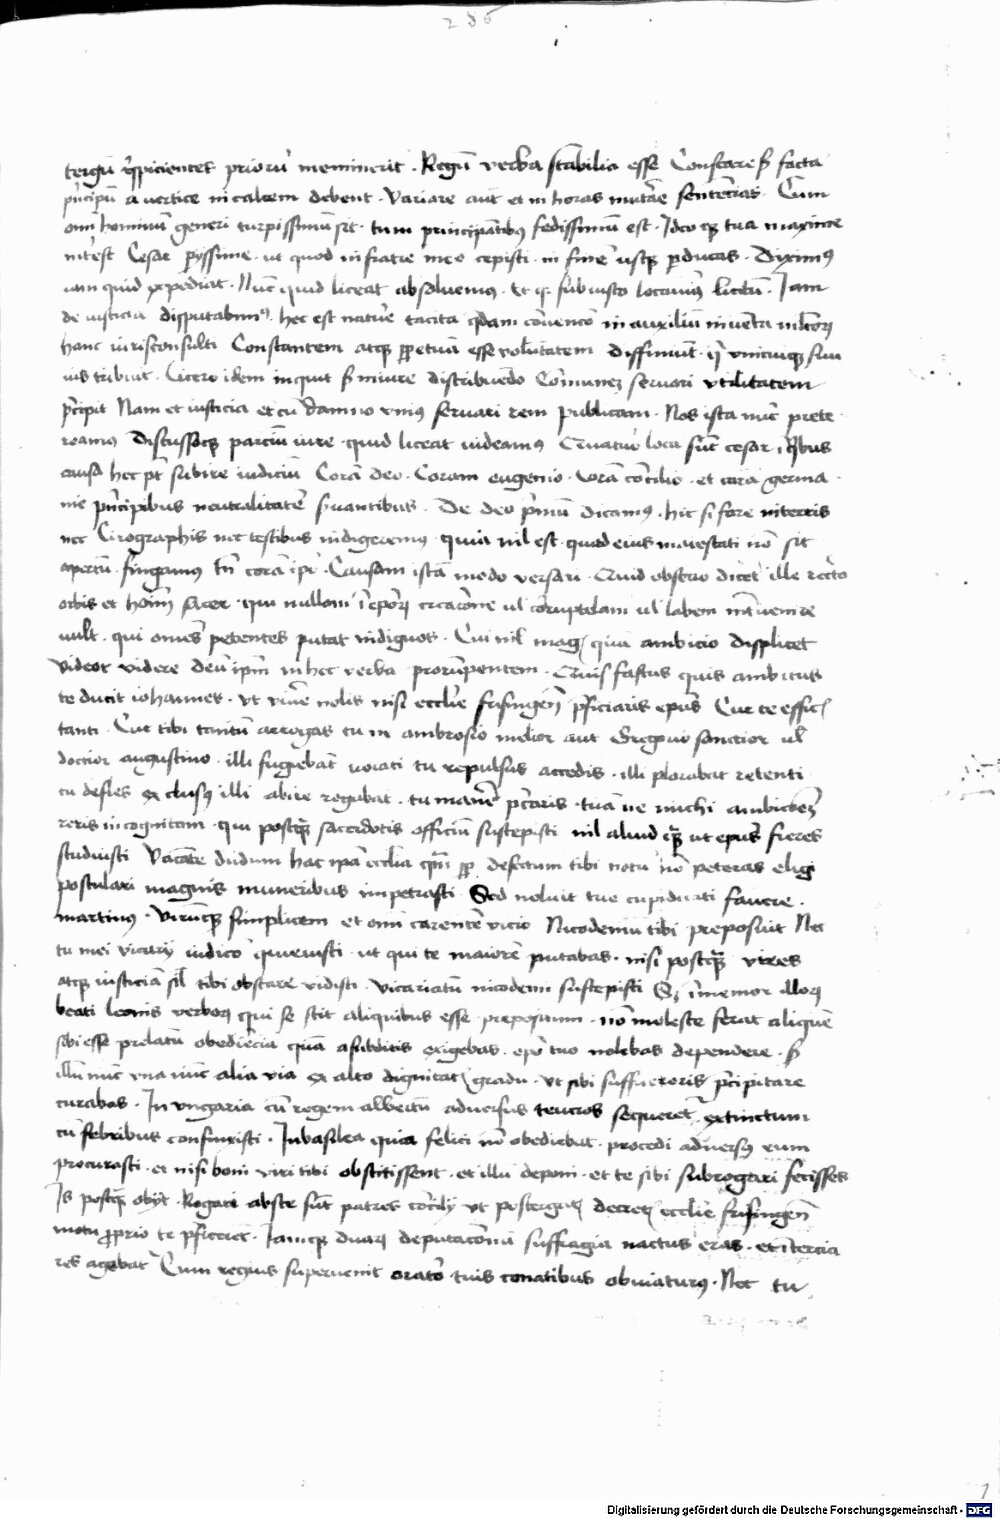 286
tergū respicientes priorū meminerit . Regū verba stabilia esse Constareqȝ facta
pricipū a vertice in calcem debent . Variare aut et in horas mutare sentencias . Cum
omī hominū generi turpissimū sit . tum principatibus fedissimū est . Ideoqȝ tua maxime
interest Cesar pyssime . ut quod in fratre meo cepisti . in finē usqȝ perducas . Diximus
iam quid expediat . Nūc quid liceat absoluemus . Et q sub iusto locauimus licitū . Iam
de iusticia disputabimus . hec est nature tacita qdam conuencio in auxiliū inuenta
hanc iurisconsulti Constantem atqȝ ppetuā esse voluntatem diffiniut . q vnicuiqȝ suū
ius tribuit . Cicero idem inquit distribuendo Comunem seruari vtilitatem
precipit Nam et iusticia et cū damno vnius seruari rem publicam . Nos ista nūc prete
reamus Discussoqȝ parciū iure . quid liceat uideamus Quatuor loca sūt cesar . in qbus
causa hec pt subire iudiciū Corā deo . Coram eugenio . Corā concilio . et corā germa
nie principibus neutralitatē seruantibus . De deo primū dicamus . hic si fore
nec Cirographis nec testibus indigeremus . quia nil est . quod eius maiestati nō sit
apertū . fingamus tn corā ipo Causam istā modo versari . Quid obsecro dicet ille rector
orbis et hoim sator . qui nullam corruptelam ul labem
uult . qui omēs petentes putat indignos . Cui nil magis quā ambicio displicet
Videor videre deū ipm in hec verba prorūpentem . Quis fastus quis ambitus
te ducit iohannes . ut viuē nolis nisi ecclie frisingen pficiaris epus Cur te
tanti . Cur tibi tantū arrogas tu ne ambrosio melior aut Gregorio sanctior ul
doctior augustino . illi fugiebāt uocati tu repulsus accedis . illi plorabāt retenti
tu defles exclusus illi abire rogabāt . tu manere pcaris . tuā ne michi ambicōez
reris incognitam . qui postqȝ sacerdotis officiū suscepisti nil aliud qȝ ut epus fieres
studuisti Vacāte dudum hac mea ecclia defectum tibi notū nō poteras eligi
postulari magnis muneribus impetrasti . Sed noluit tue cupiditati fauere .
martinus . Virūqȝ simplicem et omi carentē vicio Nicodemū tibi preposuit Nec
tu mei vicarij iudicio quieuisti . ut qui te maiorē putabas . nisi postqȝ vires
atqȝ iusticiā sil tibi obstare vidisti . vicariatū nicodemi suscepisti Sȝ immemor illorȝ
beati leonis verborȝ qui se scit aliquibus esse prepositum . nō moleste ferat aliquē
sibi esse prelatū obedienciā quā a subditis exigebas . epo tuo nolebas dependere .
illū nūc vna nūc alia via ex alto dignitatis gradu . ut sibi suffureroris precipitare
curabas . In vngaria cū regem albertū aduersus teucros sequeretur extinctum
cū febribus confinxisti . In basilea quia felici nō obediebat . procedi aduersus eum
procurasti . et nisi boni viri tibi obstitissent . et illū deponi . et te sibi subrogari fecisses
Is postqȝ obijt . Rogati abs te sūt patres concilij ut postergatis decretis ecclie frisingen
motu proprio te pficerēt . Iamqȝ duarȝ deputacionū suffragia nactus eras . et in tercia
res agebat Cum regius superuenit orator tuis conatibus obuiaturus . Nec tu
1
Digitalisierung gefördert durch die Deutsche Forschungsgemeinschaft - DFG